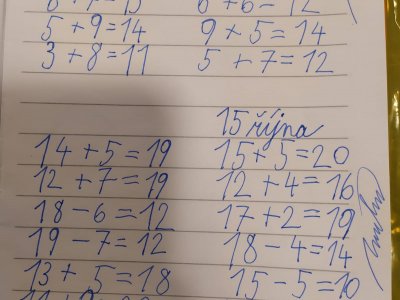 6+6=12
5+9=14 9+5=14
3+8=11 5+7=12
15 října
14+5=19 15+5=20
12+7=19 12+4=16
18-6=12 17+2=19
19-7=12 18-4=14
13+5=18 15-5=10